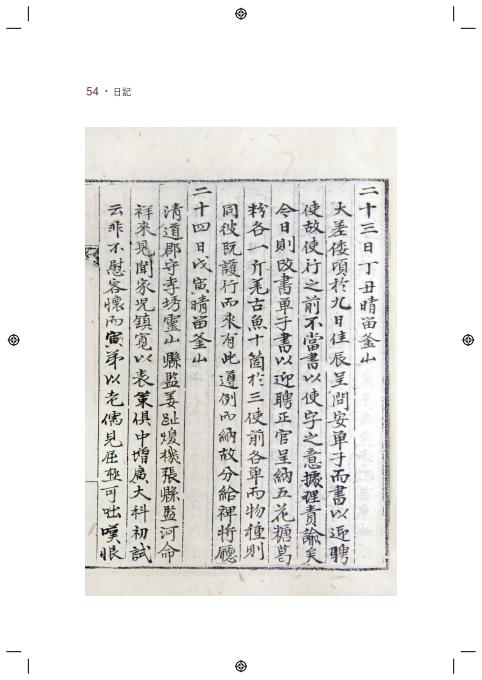 54 · 日記
二十三日丁丑晴留釜山
大差倭頃於九日佳辰呈問安單子而書以迎聘
使故使行之前不當書以使字之意據理責諭矣
今日則改書單子書以迎聘正官呈納五花糖葛
粉各一斤羌古魚十箇於三使前各單而物種則
同彼旣護行而來有此遵例而納故分給裨將廳
二十四日戊寅晴留釜山
清道郡守李琇靈山縣監姜趾煥機張縣監河命
祥來見聞家兒鎭寬以表策俱中增廣大科初試
云非不慰客懷而寅弟以老儒見屈極可咄嘆悵